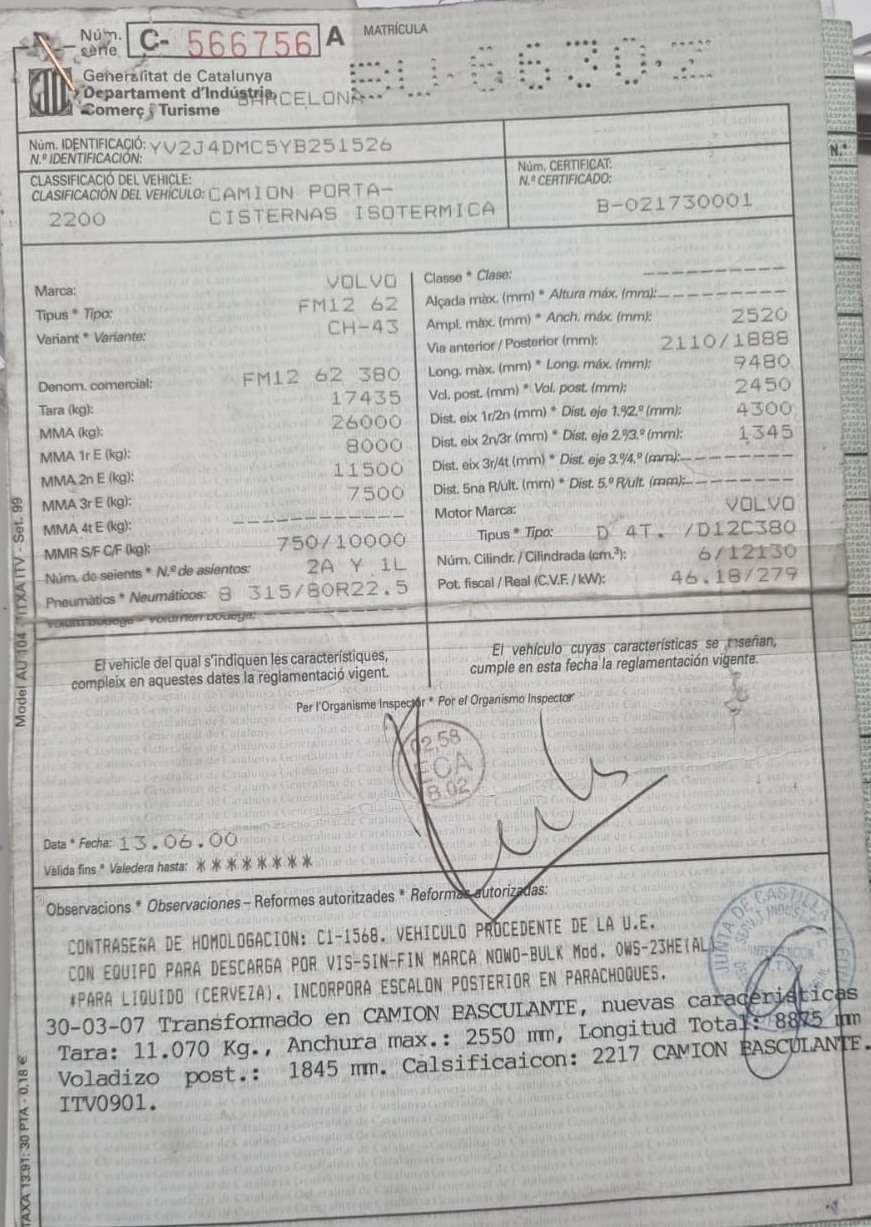 Núm. sèrie C- 566756 A MATRÍCULA
BU-6630-Z
Generalitat de Catalunya
Departament d'Indústria, BARCELONA
Comerç i Turisme
Núm. IDENTIFICACIÓ: YV2J4DMC5YB251526
N.º IDENTIFICACIÓN:
CLASSIFICACIÓ DEL VEHICLE:
CLASIFICACIÓN DEL VEHÍCULO: CAMION PORTA-
2200 CISTERNAS ISOTERMICA
Núm. CERTIFICAT:
N.º CERTIFICADO:
B-021730001
N.º
Marca: VOLVO
Tipus * Tipo: FM12 62
Variant * Variante: CH-43
Denom. comercial: FM12 62 380
Tara (kg): 17435
MMA (kg): 26000
MMA 1r E (kg): 8000
MMA 2n E (kg): 11500
MMA 3r E (kg): 7500
MMA 4t E (kg): ------------
MMR S/F C/F (kg): 750/10000
Núm. de seients * N.º de asientos: 2A Y 1L
Pneumàtics * Neumáticos: 8 315/80R22.5
Volum bodega * Volumen bodega: ------------
Classe * Clase: ----------
Alçada màx. (mm) * Altura máx. (mm): ---------
Ampl. màx. (mm) * Anch. máx. (mm): 2520
Via anterior / Posterior (mm): 2110/1888
Long. màx. (mm) * Long. máx. (mm): 9480
Vol. post. (mm) * Vol. post. (mm): 2450
Dist. eix 1r/2n (mm) * Dist. eje 1.º/2.º (mm): 4300
Dist. eix 2n/3r (mm) * Dist. eje 2.º/3.º (mm): 1345
Dist. eix 3r/4t (mm) * Dist. eje 3.º/4.º (mm): --------
Dist. 5na R/ult. (mm) * Dist. 5.º R/ult. (mm): --------
Motor Marca: VOLVO
Tipus * Tipo: D 4T. /D12C380
Núm. Cilindr. / Cilindrada (cm.³): 6/12130
Pot. fiscal / Real (C.V.F. / kW): 46.18/279
El vehicle del qual s'indiquen les característiques,
compleix en aquestes dates la reglamentació vigent.
El vehículo cuyas características se reseñan,
cumple en esta fecha la reglamentación vigente.
Per l'Organisme Inspector * Por el Organismo Inspector
02,58
ECA
8.02
Data * Fecha: 13.06.00
Vàlida fins * Valedera hasta: ********
Observacions * Observaciones – Reformes autoritzades * Reformas autorizadas:
CONTRASEÑA DE HOMOLOGACION: C1-1568. VEHICULO PROCEDENTE DE LA U.E.
CON EQUIPO PARA DESCARGA POR VIS-SIN-FIN MARCA NOWO-BULK Mod. OWS-23HE(AL)
*PARA LIQUIDO (CERVEZA). INCORPORA ESCALON POSTERIOR EN PARACHOQUES.
JUNTA DE CASTILLA
30-03-07 Transformado en CAMION BASCULANTE, nuevas caraceristicas
Tara: 11.070 Kg., Anchura max.: 2550 mm, Longitud Total: 8875 mm
Voladizo post.: 1845 mm. Calsificaicon: 2217 CAMION BASCULANTE.
ITV0901.
Model AU 104 - TITXA ITV - Set. 99
TAXA 13.91: 30 PTA - 0,18 €